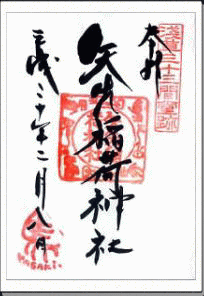 奉拝
浅草三十三間堂跡
矢先稲荷神社
平成二十年二月八日
YASAKI